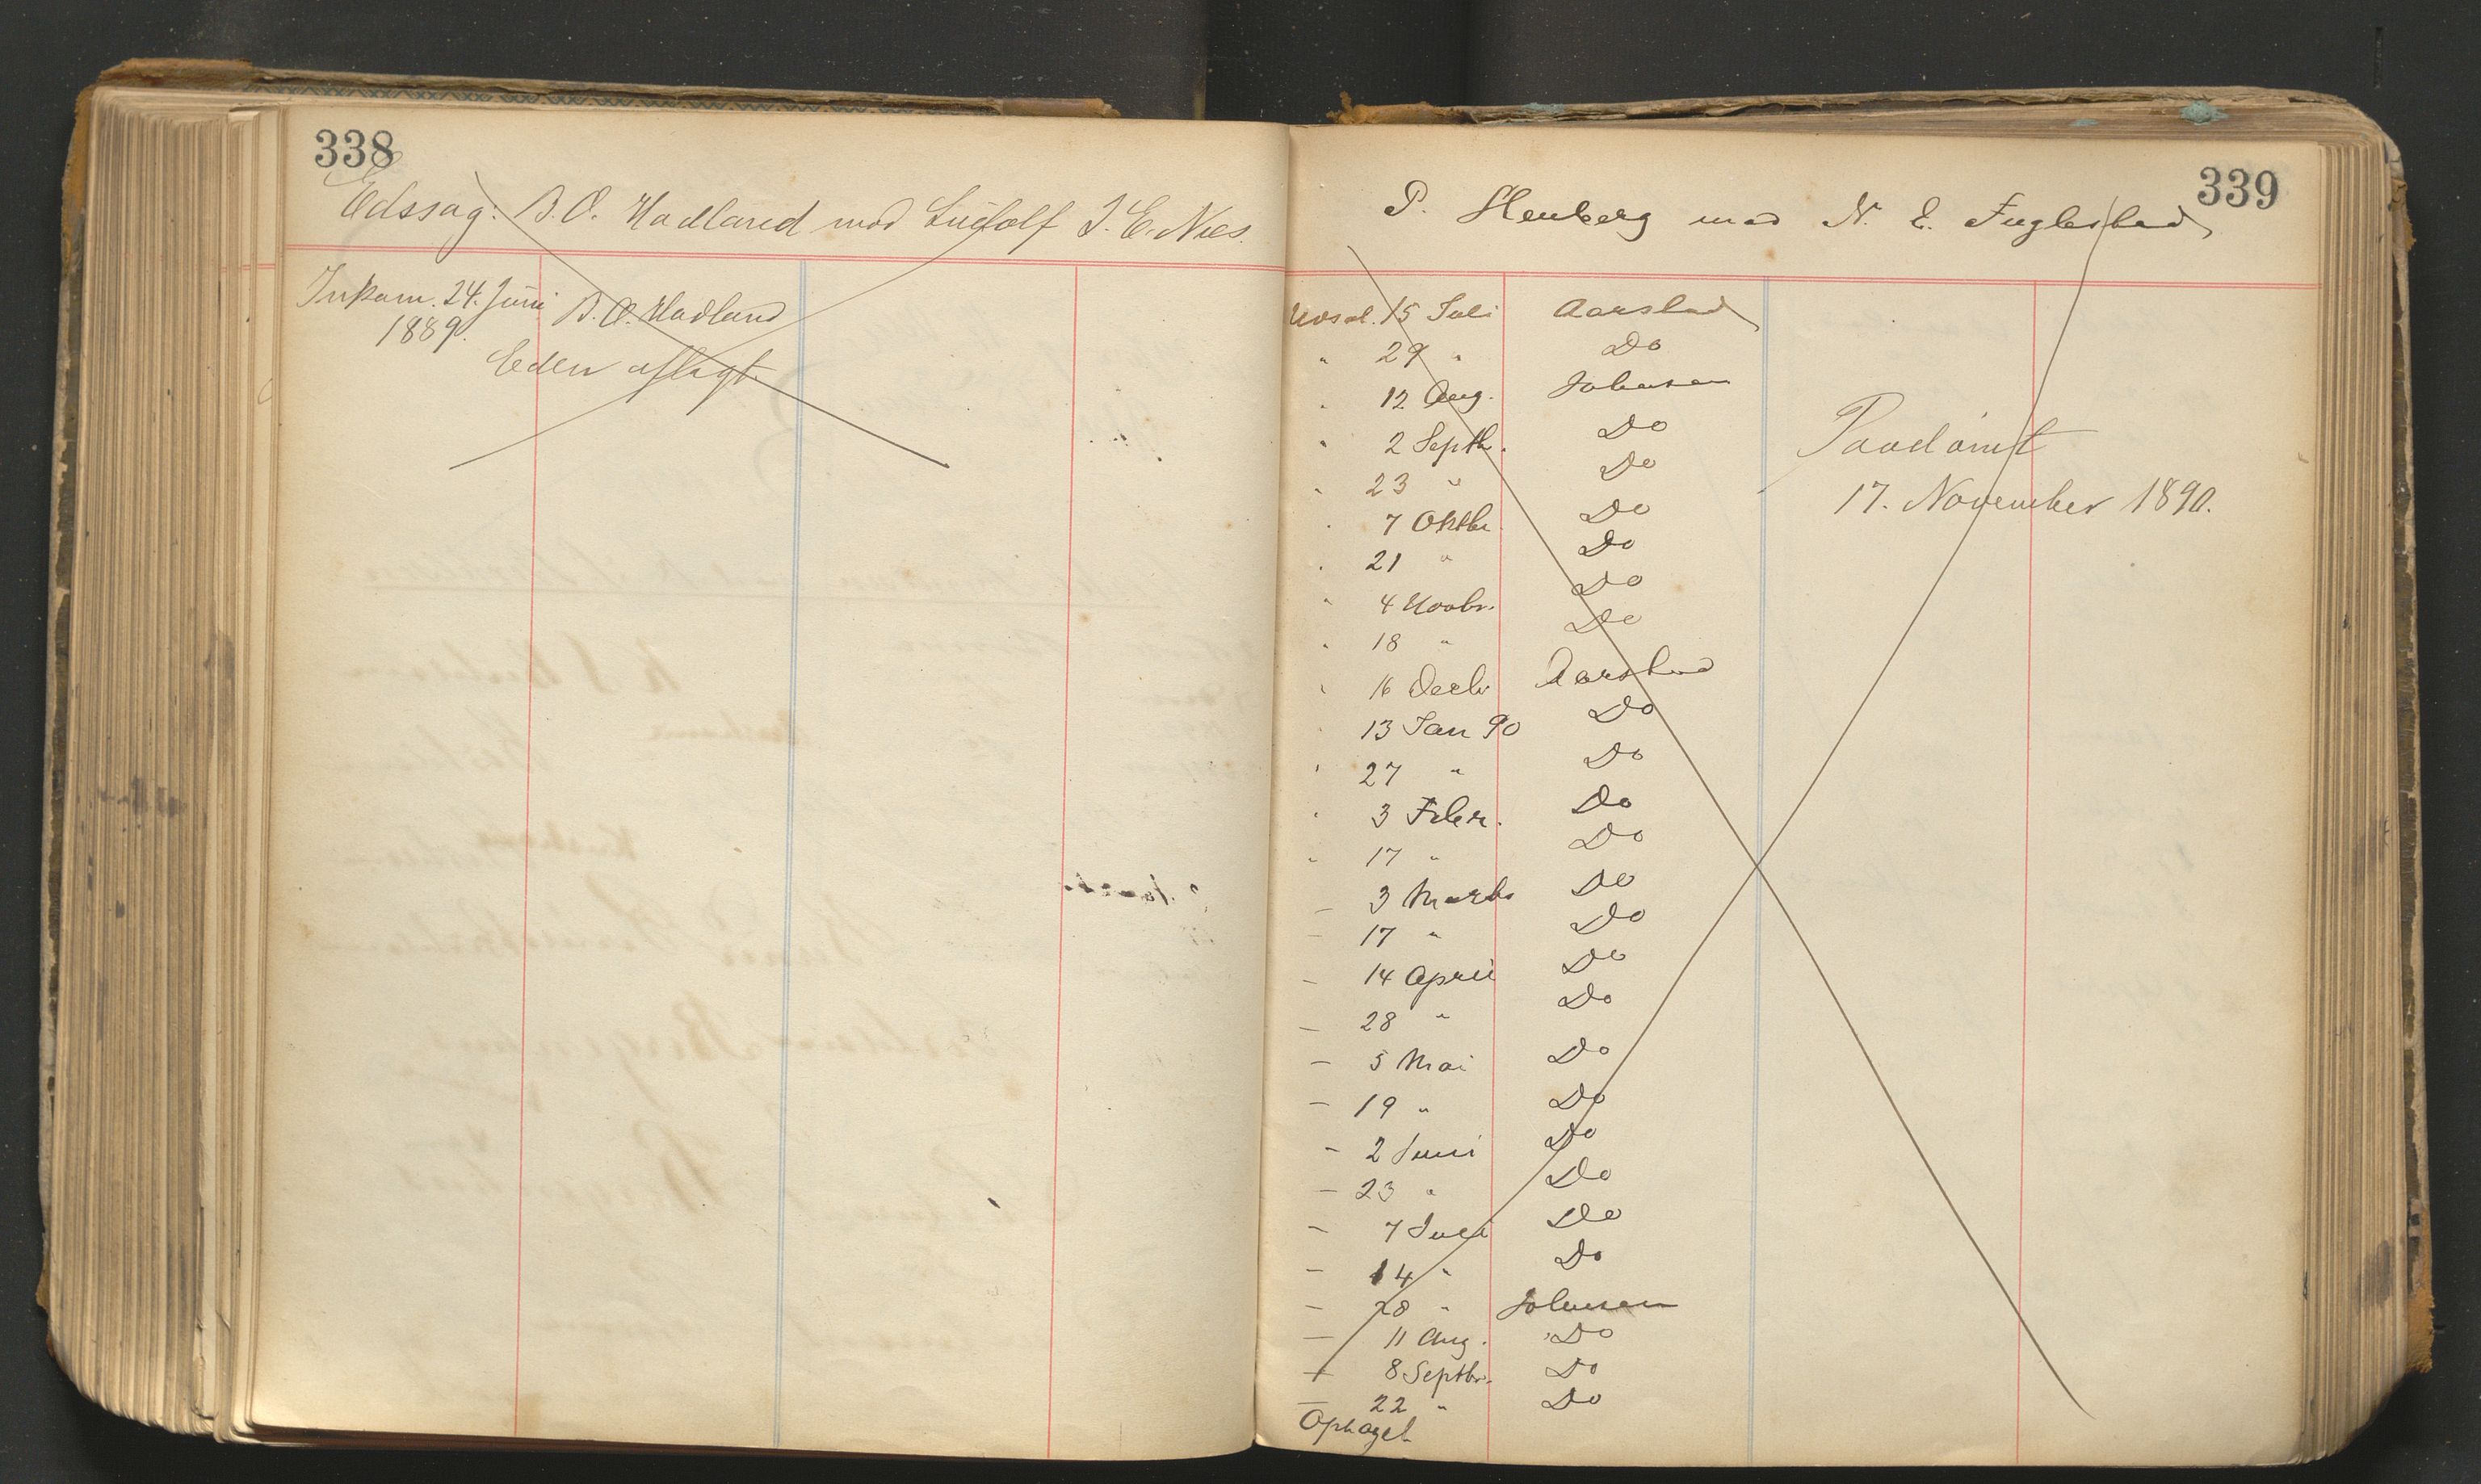 338
Edssag: B. O. Hadland mod Ludolf I. E. Nies.
Inkam. 24. Juni B. O. Hadland
1889.
Eden aflagt.
339
P. Stenberg mod N. E. Fuglestad
Udsat. 15 Juli Aarstad
" 29 " Do
" 12 Aug. Johnsen
" 2 Septbr. Do
" 23 " Do
" 7 Oktbr. Do
" 21 " Do
" 4 Novbr. Do
" 18 " Do
" 16 Decbr Aarstad
" 13 Jan 90 Do
" 27 " Do
" 3 Febr. Do
" 17 " Do
— 3 Marts Do
— 17 " Do
— 14 April Do
— 28 " Do
— 5 Mai Do
— 19 " Do
— 2 Juni Do
— 23 " Do
— 7 Juli Do
— 14 " Do
— 28 " Johnsen
— 11 Aug. Do
— 8 Septbr. Do
— 22 " Do
Optaget
Paadömt
17. November 1890.